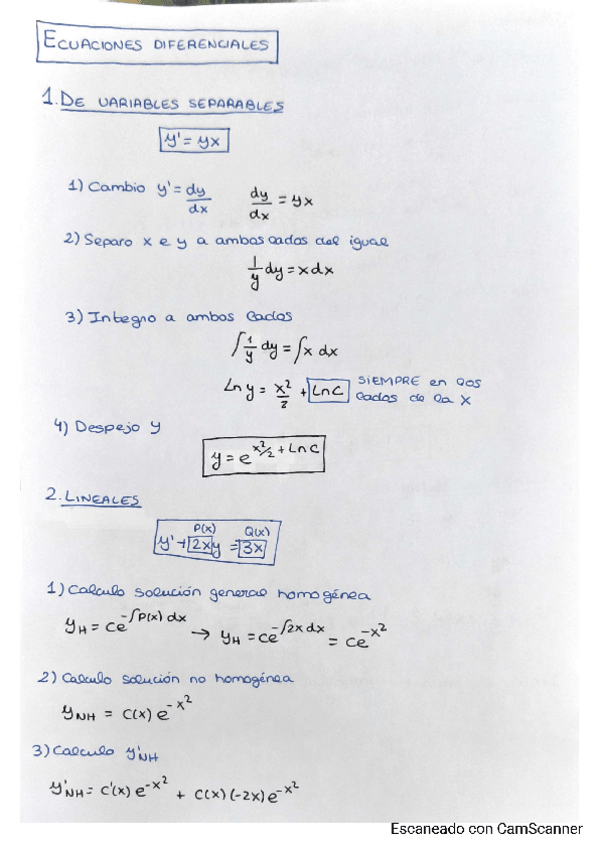 ECUACIONES DIFERENCIALES
1. DE VARIABLES SEPARABLES
y' = yx
1) Cambio y' = dy/dx    dy/dx = yx
2) Separo x e y a ambos lados del igual
1/y dy = x dx
3) Integro a ambos lados
∫ 1/y dy = ∫ x dx
Ln y = x²/2 + Ln C SIEMPRE en los
lados de la X
4) Despejo y
y = e^(x²/2 + Ln C)
2. LINEALES
P(x) Q(x)
y' + 2xy = 3x
1) Calculo solución general homogénea
y_H = ce^(-∫P(x) dx) → y_H = ce^(-∫2x dx) = ce^(-x²)
2) Calculo solución no homogénea
y_NH = C(x) e^(-x²)
3) Calculo y'_NH
y'_NH = C'(x) e^(-x²) + C(x) (-2x) e^(-x²)
Escaneado con CamScanner